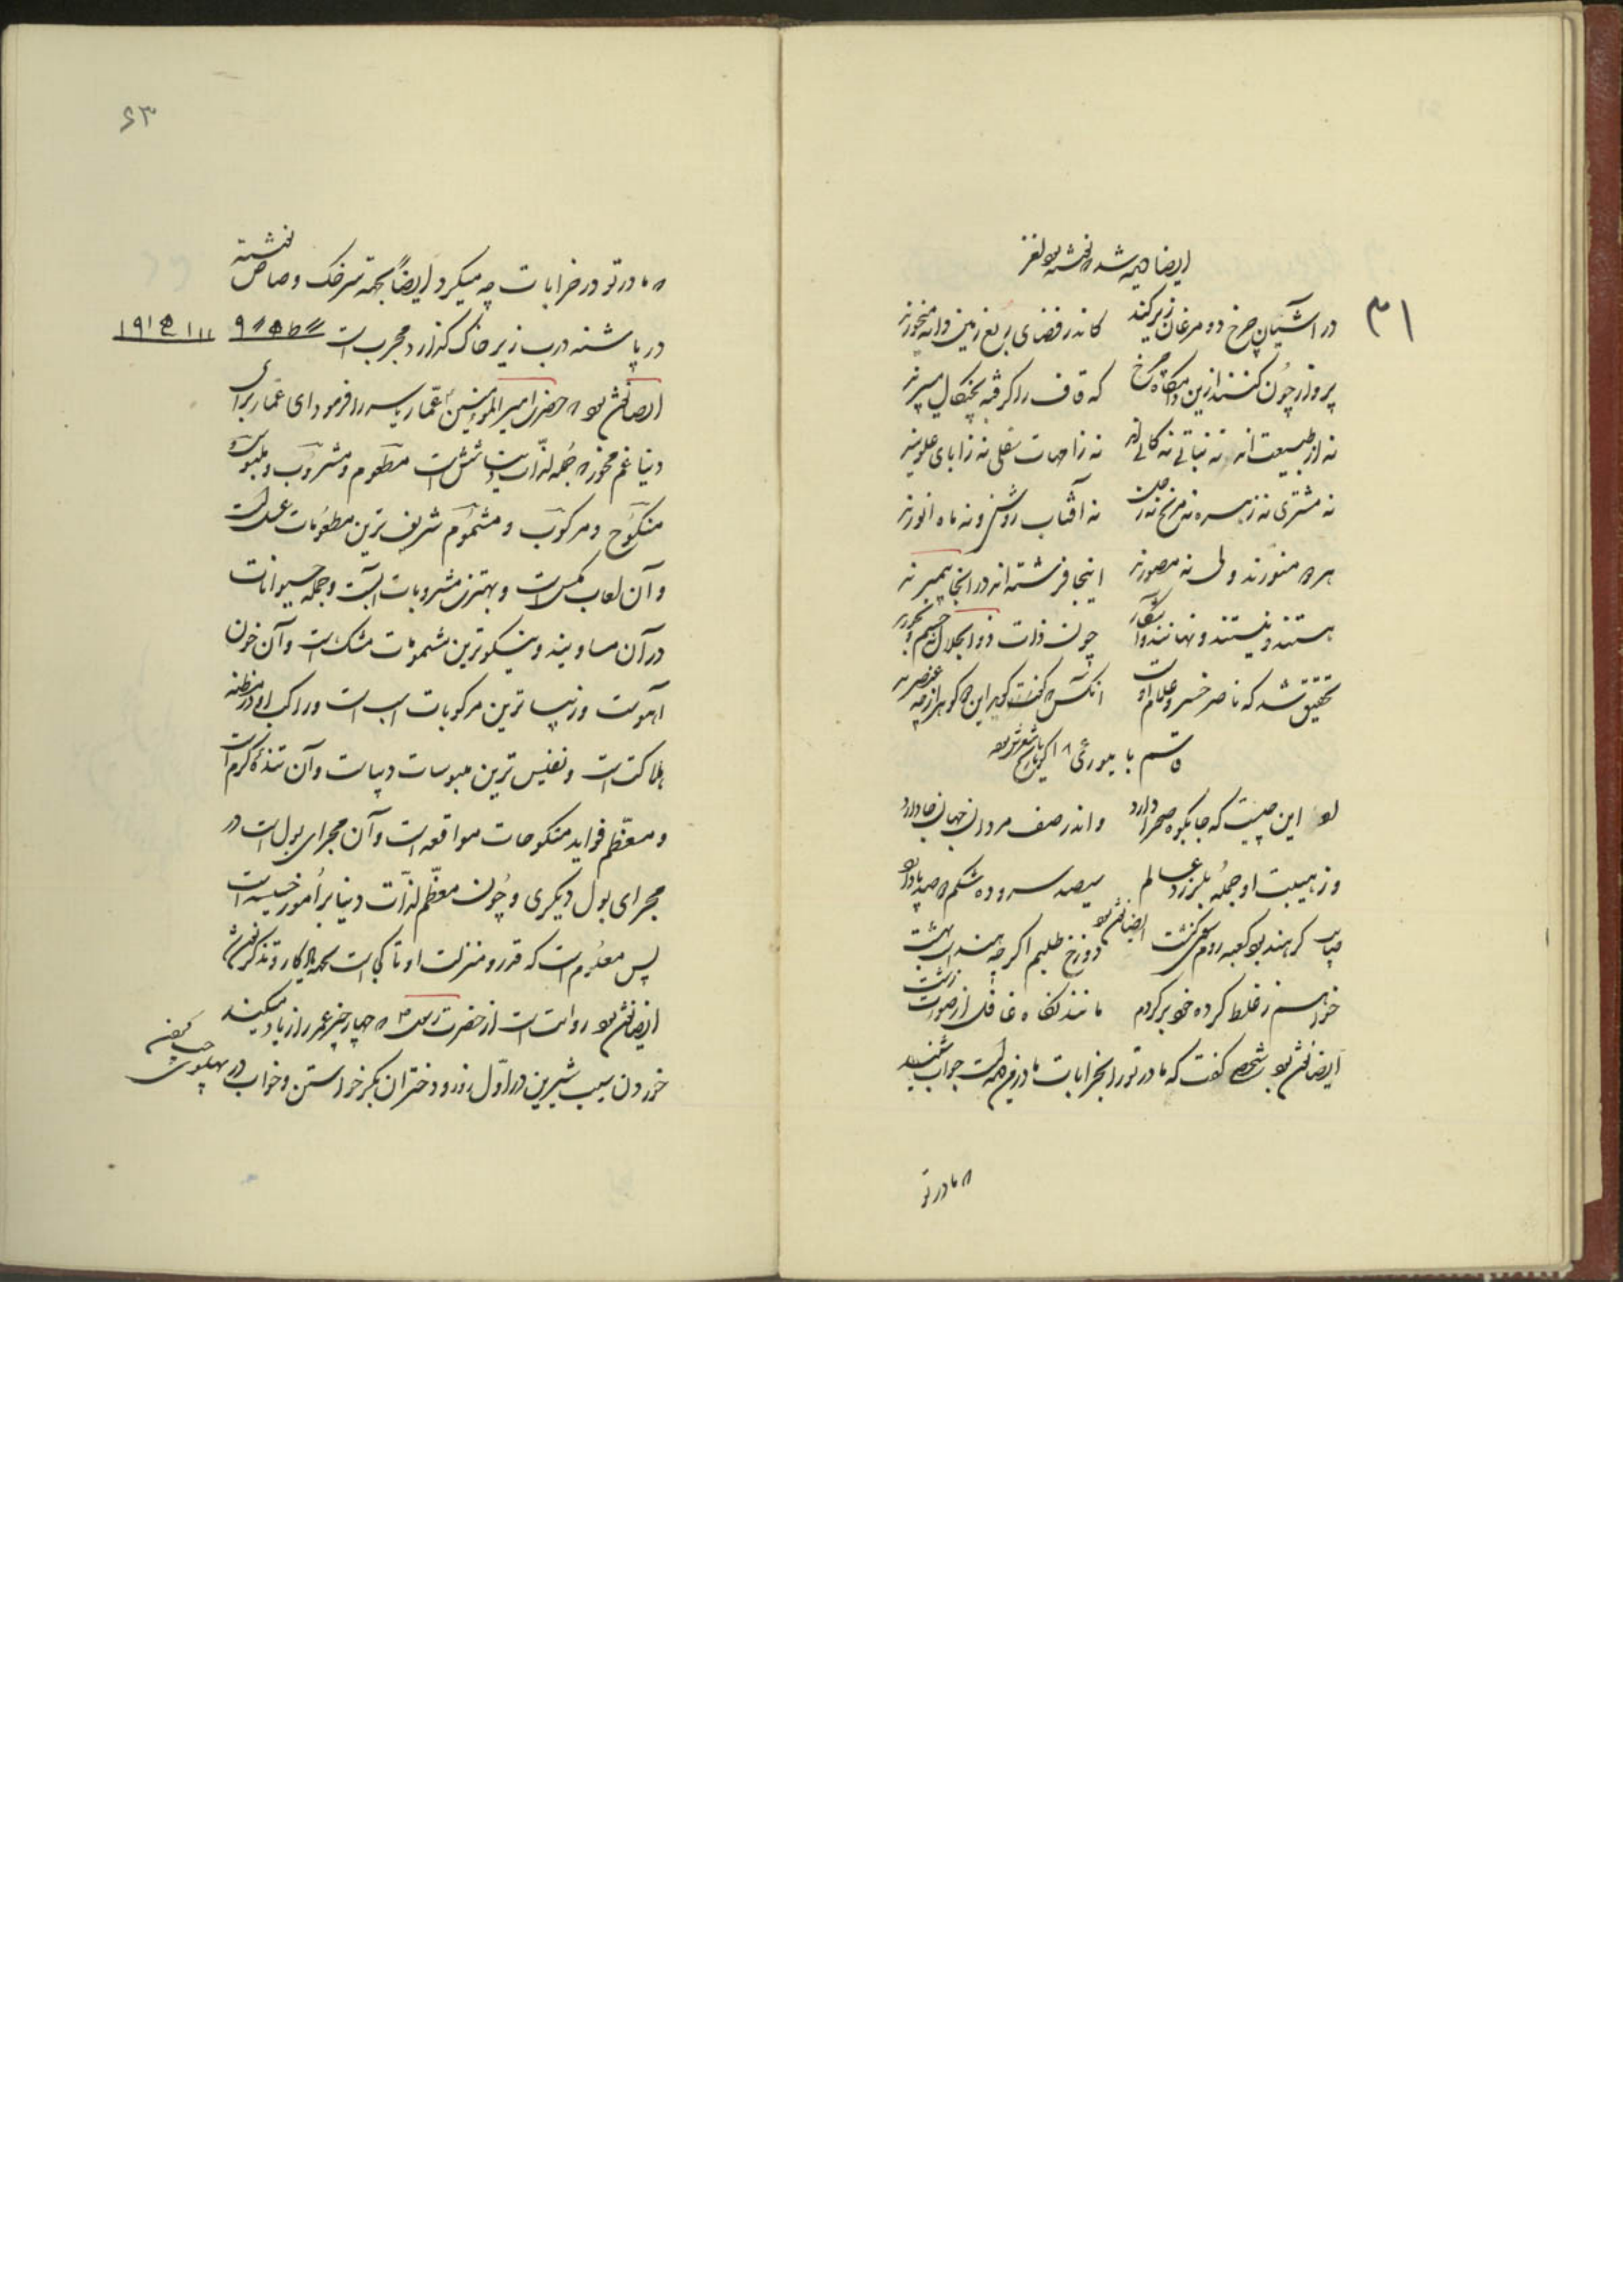 ایضا دیده شد نوشته بود لغز
۳۱
در آشیان چرخ دو مرغان زیرکند کاندر فضای ربع زمین دانه میخورند
پرواز چون کنند ازین دامگاه چرخ که قاف را گرفته بچنگال میپرند
نه از طبیعت اند نه نباتی نه کانی اند نه زامهات سفلی نه زابای علویند
نه مشتری نه زهره نه مریخ نه زحل نه آفتاب روشن و نه ماه انورند
هر دو منورند ولی نه مصورند اینجا فرشته اند در انجا پیمبرند
هستند و نیستند و نهانند و آشکار چون ذات ذوالجلال نه جسم و نه جوهرند
تحقیق شد که ناصر خسرو غلام اوست آنکس که گفت گوید این دو گوهر از چه عنصرند
قاسم با
این چیست که جا بکوه و صحرا دارد و اندر صف مردان جهان جا دارد
وز هیبت او جمله بلرزد عالم سیصد سر و ده شکم دو صد پا دارد
ایضا نوشته بود
گر هند بود کعبه روم سوی کنشت دوزخ طلبم اگر چه هند است بهشت
خواهم ز غلط کرده خود برگردم مانند نگاه غافل از صورت زشت
ایضا نوشته بود شخصی گفت که مادر تو را بخرابات مادرم جواب شنید
که مادر تو
۶۳
که مادر تو در خرابات چه میکرد ایضاً بجهة سرخک و صاص نوشته
در پاشنه درب زیر خاک گذارد مجرب است
ایضا نوشته بود که حضرت امیر المؤمنین عمار یاسر را فرمود ای عمار برای
دنیا غم مخور که جمله لذّات دنیا شش است مطعوم و مشروب و ملبوس و
منکوح و مرکوب و مشموم شریف ترین مطعومات عسل است
و آن لعاب مگس است و بهترین مشروبات آبست و جمله حیوانات
در آن مساویند و نیکوترین مشمومات مشک است و آن خون
آهوست و زیباترین مرکوبات اسب است و راکب او در مظنه
هلاکت است و نفیس ترین ملبوسات دیباست و آن تنیده کرم است
و معظم فواید منکوحات مواقعه است و آن مجرای بول است در
مجرای بول دیگری و چون معظّم لذّات دنیا بر امور خسیسه است
پس معلوم است که قدر و منزلت او تا کجاست
ایضا نوشته بود روایت است از حضرت رسول که چهار چیز عمر را زیاد میکند
خوردن سیب شیرین در اوّل روز و دختران بکر خواستن و خواب در پهلوی چپ